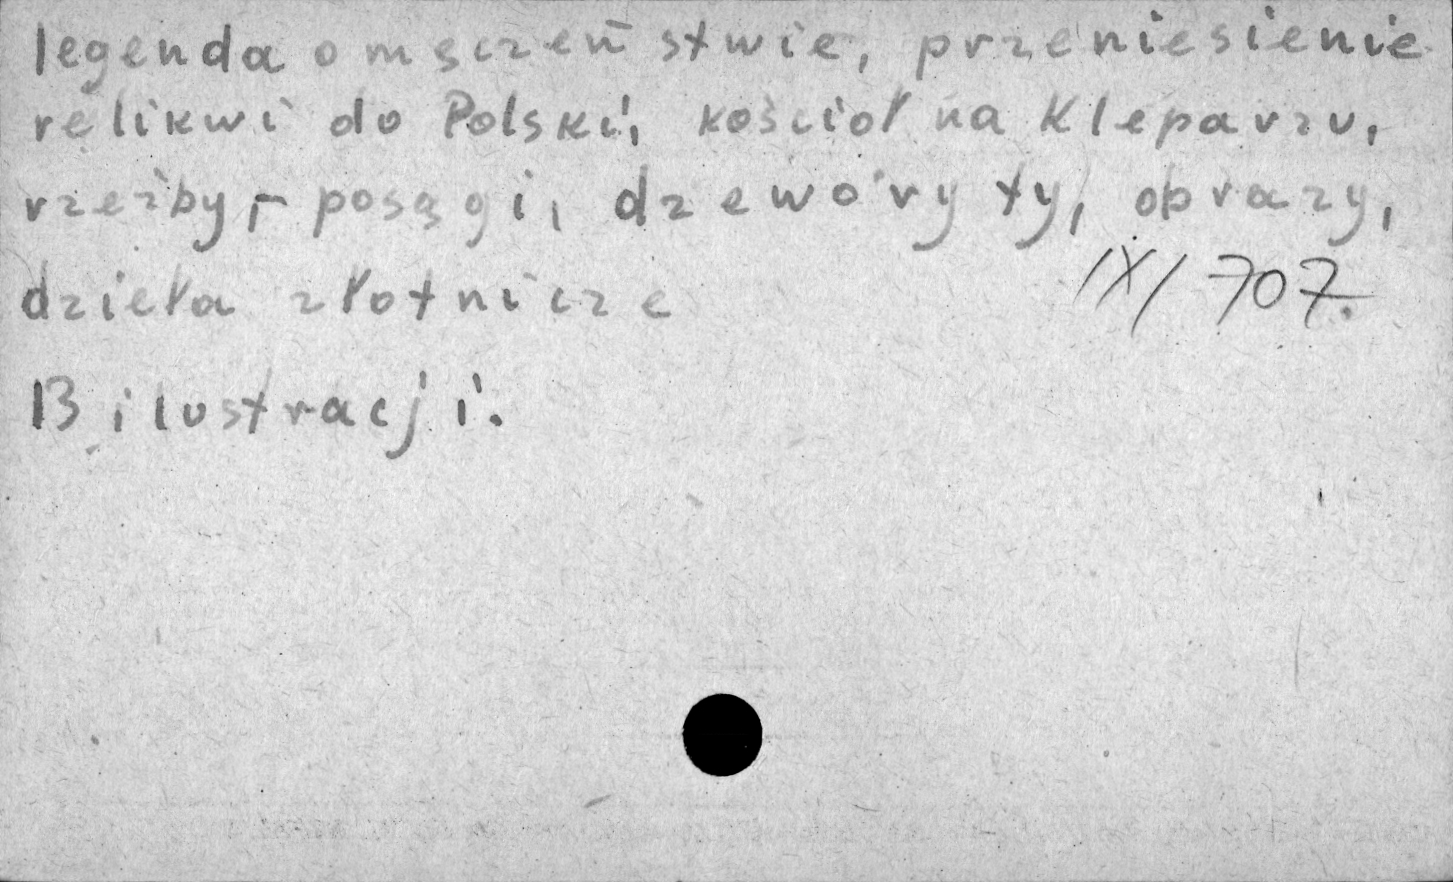 legenda o męczeństwie, przeniesienie
relikwi do Polski, kościół na Kleparzu,
rzeźby, - posągi, drzeworyty, obrazy,
dzieła złotnicze IX/707.
13 ilustracji.